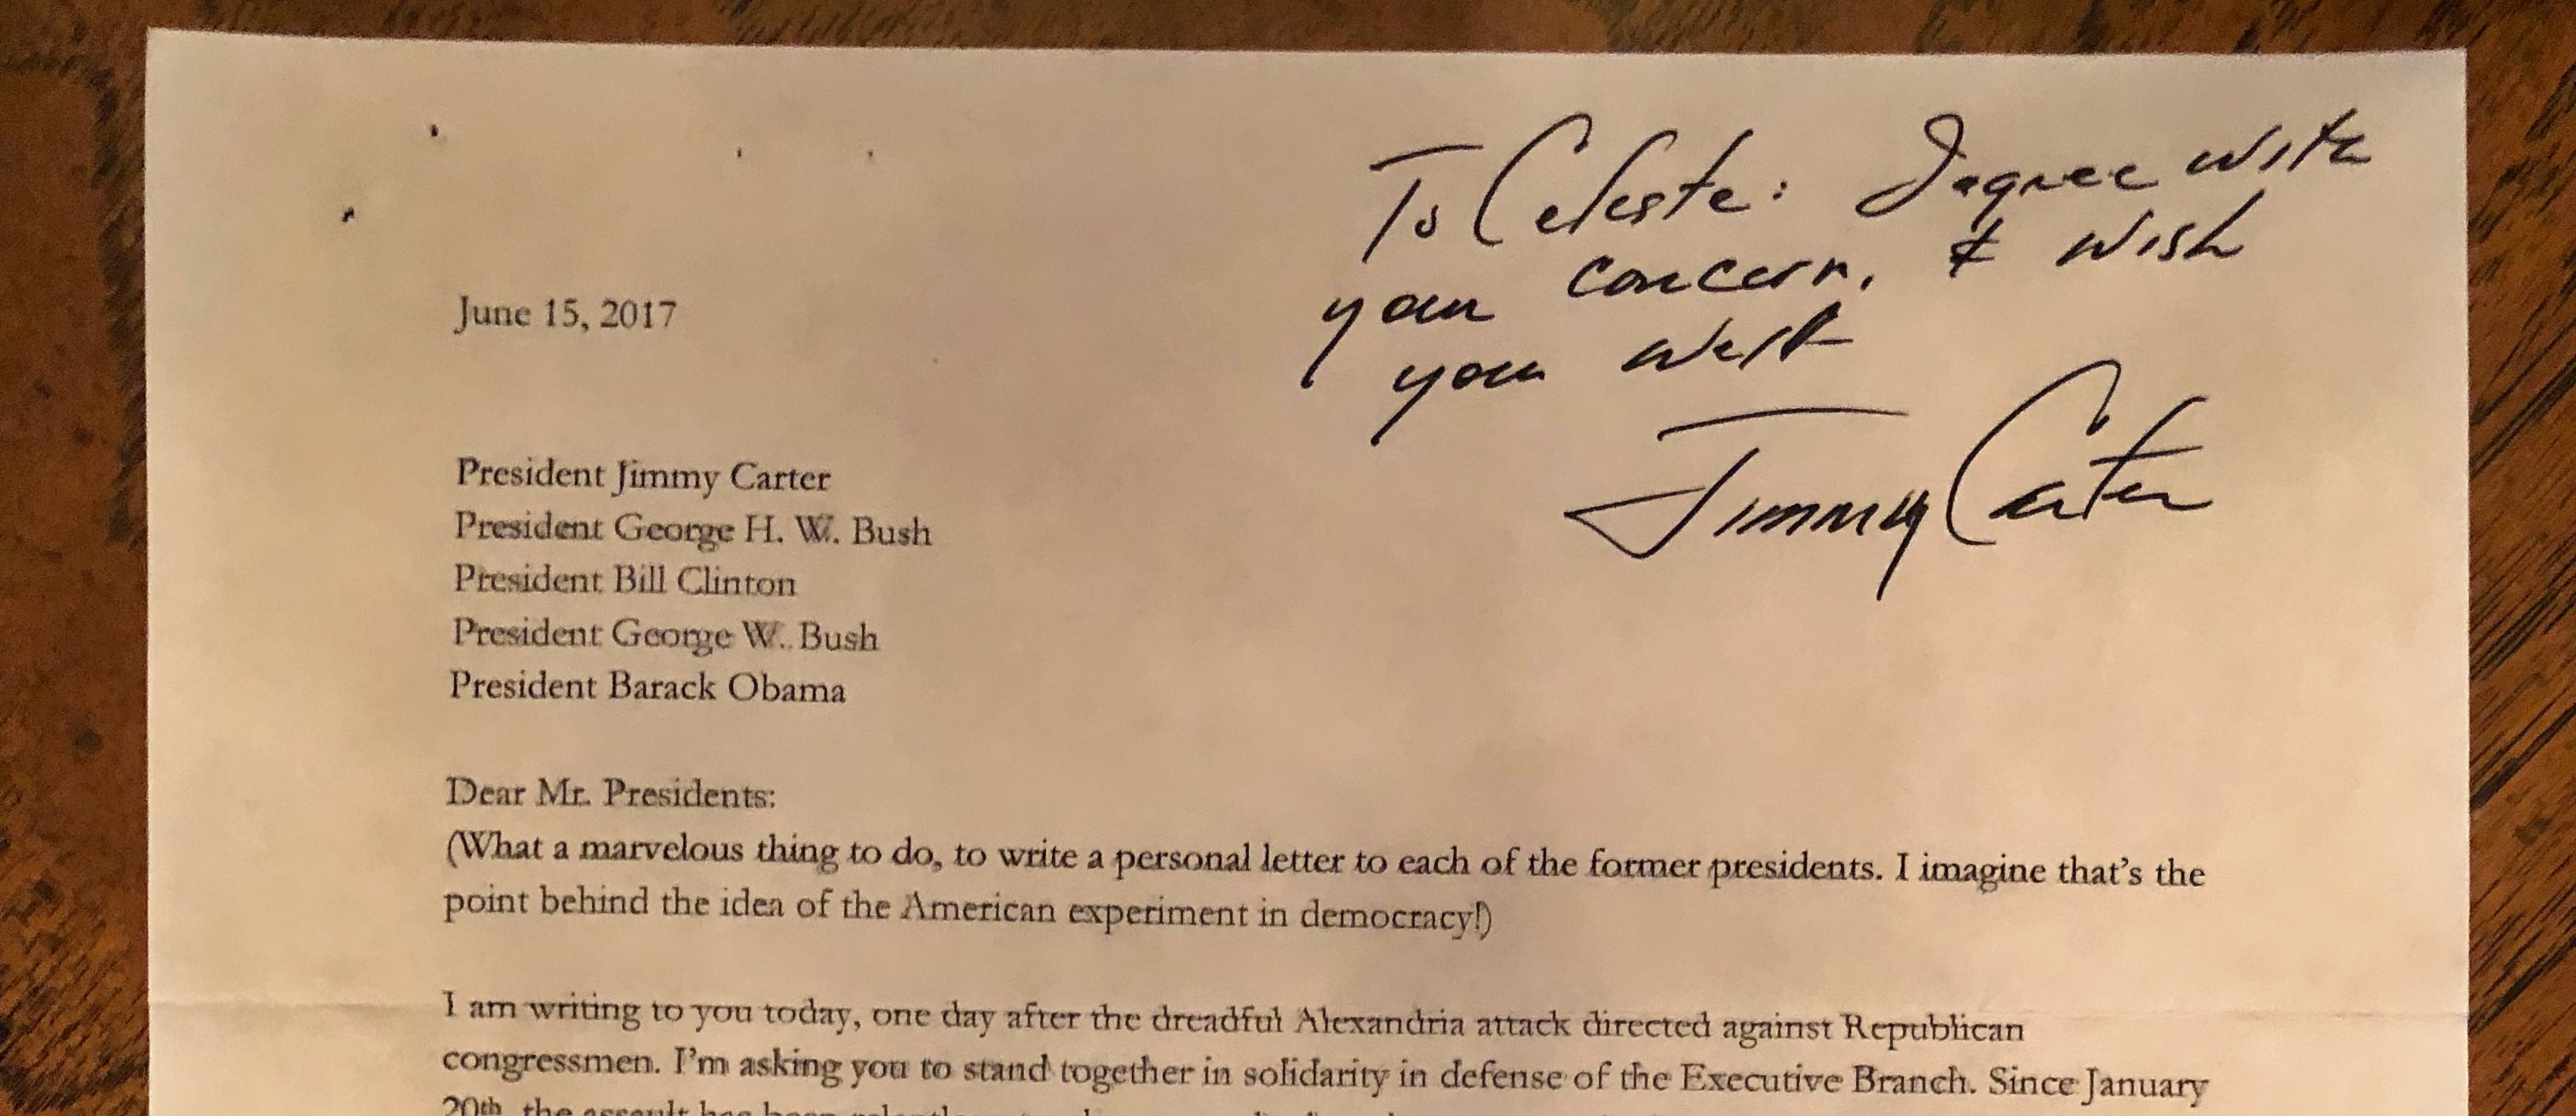 To Celeste: I agree with
your concern, & wish
you well
Jimmy Carter
June 15, 2017
President Jimmy Carter
President George H. W. Bush
President Bill Clinton
President George W. Bush
President Barack Obama
Dear Mr. Presidents:
(What a marvelous thing to do, to write a personal letter to each of the former presidents. I imagine that's the
point behind the idea of the American experiment in democracy!)
I am writing to you today, one day after the dreadful Alexandria attack directed against Republican
congressmen. I'm asking you to stand together in solidarity in defense of the Executive Branch. Since January
20th, the assault has been